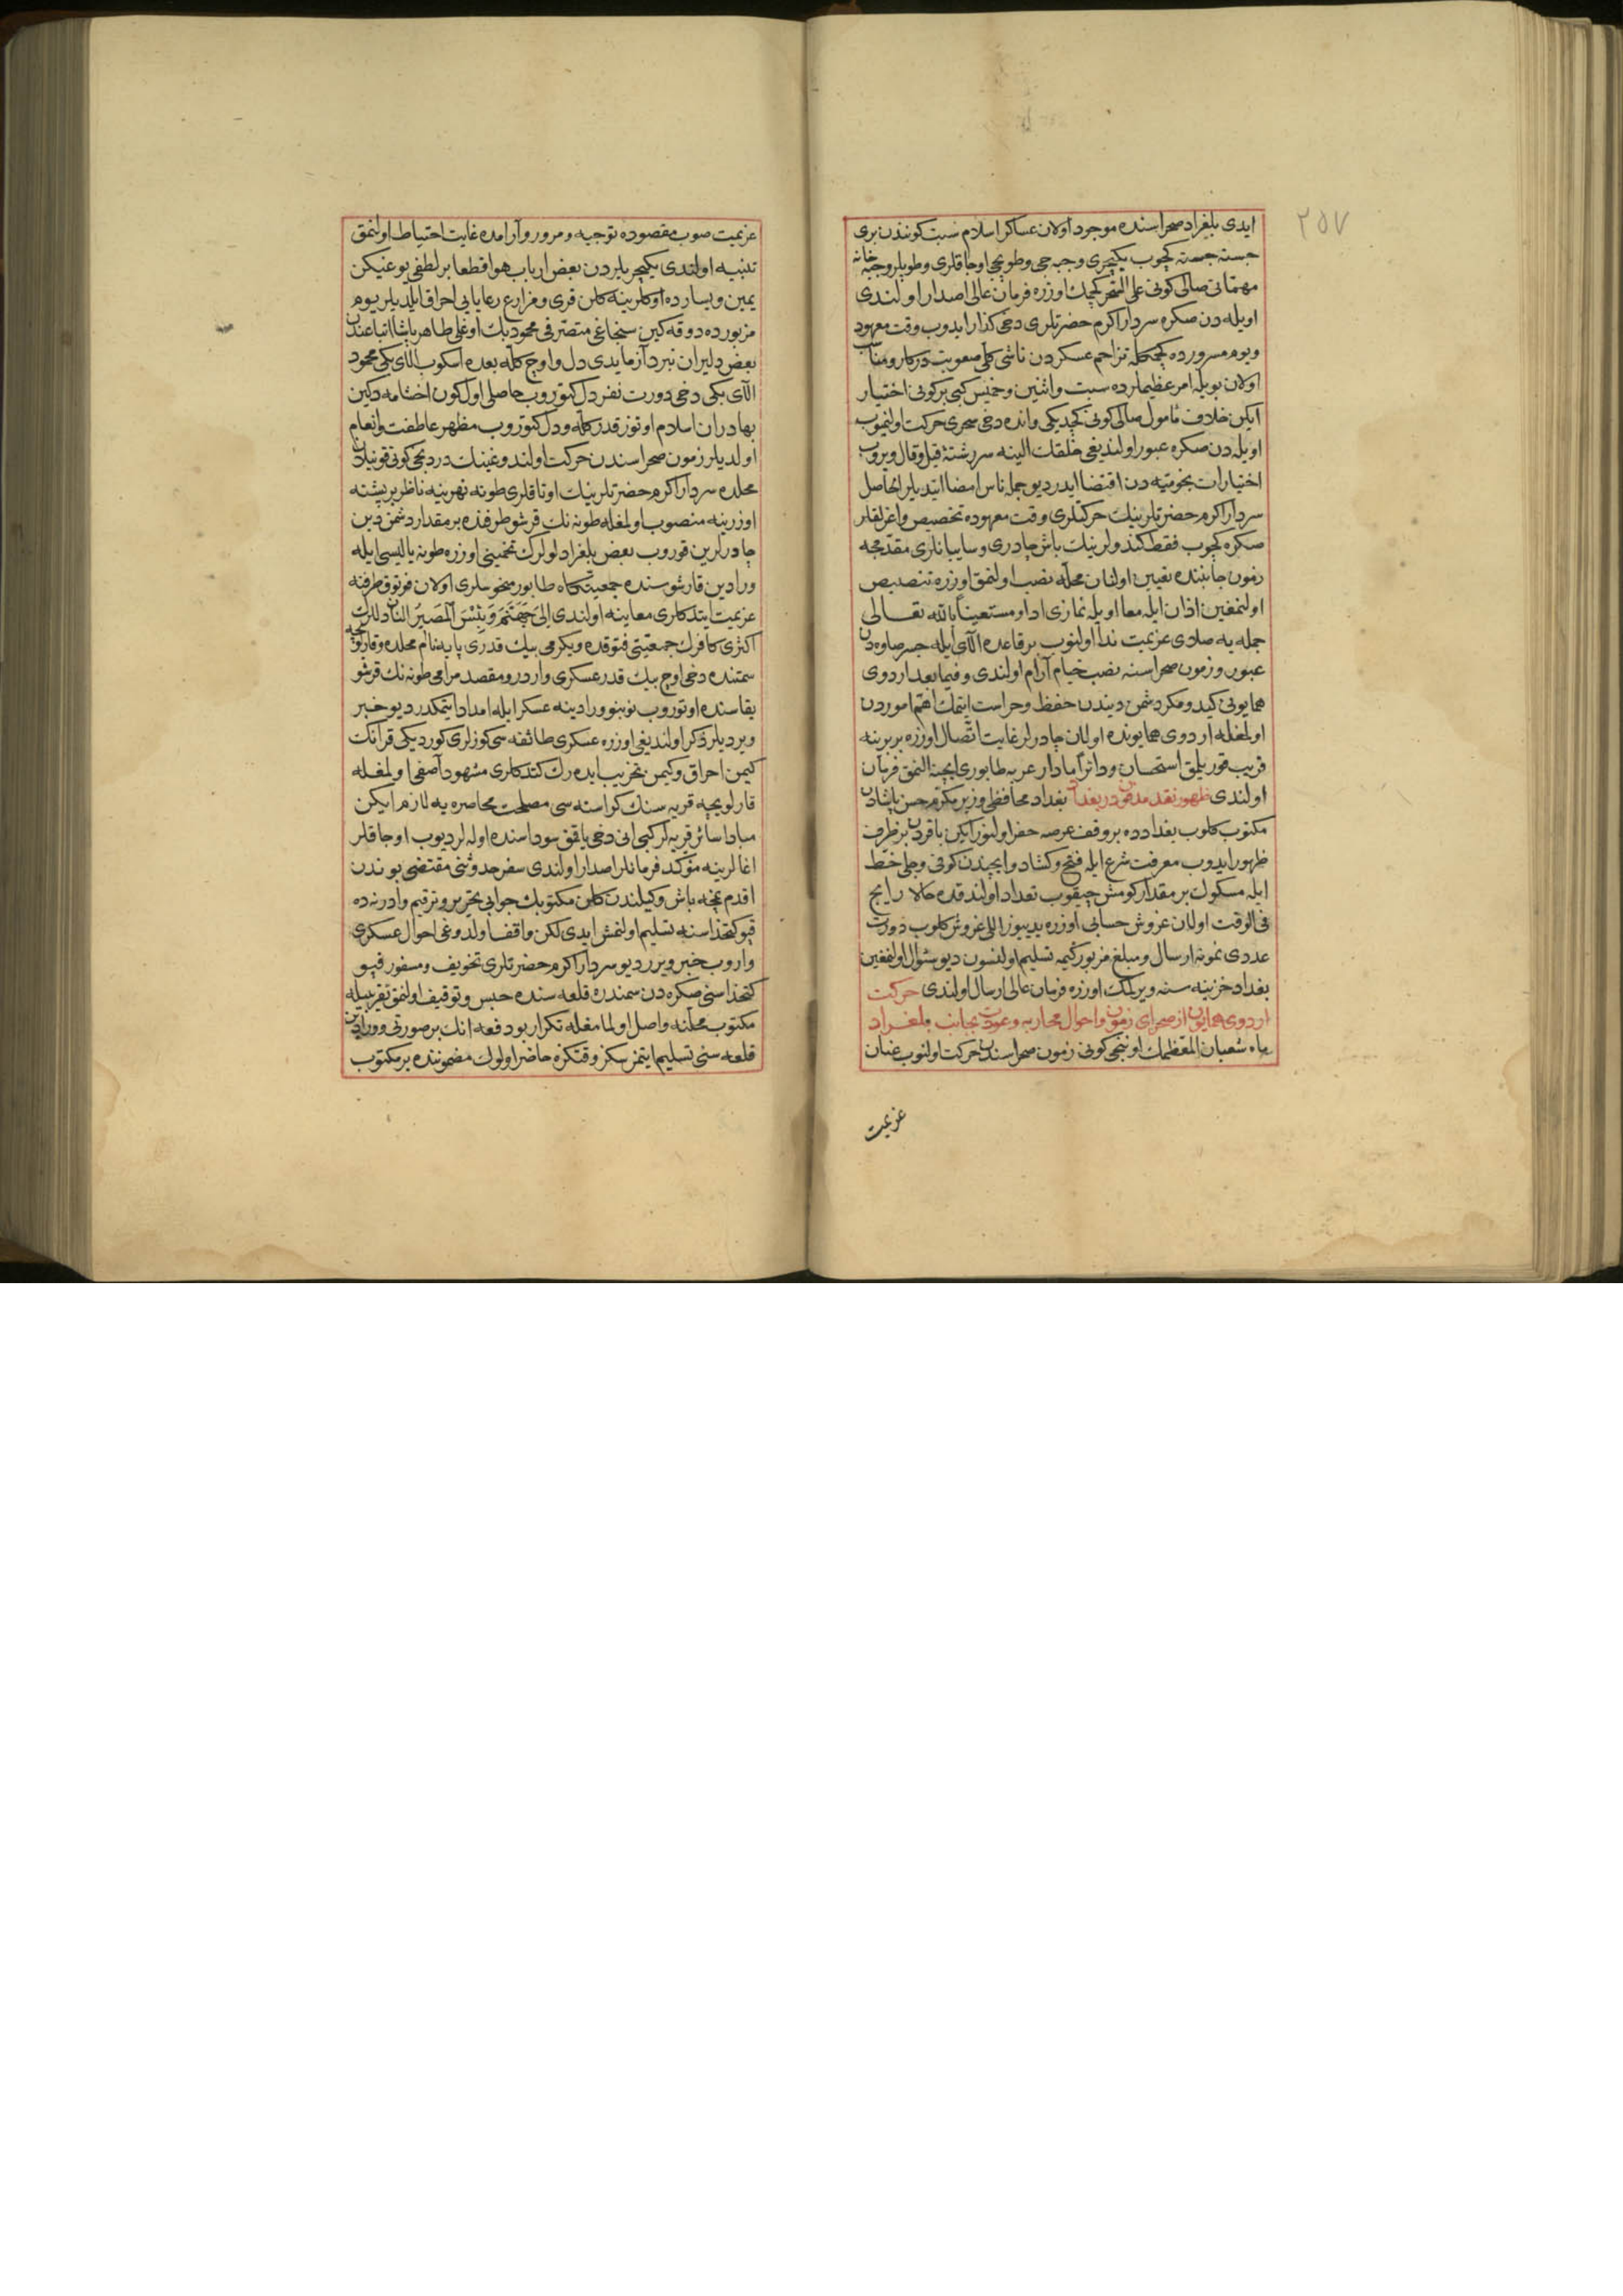 ٢٥٧
ایدی بلغراد صحراسنده موجود اولان عساكر اسلام سبت كونندن بری
جسته جسته كچوب یكیچری وجبه جی وطوپچی اوجاقلری وطوپلر وجبه خانه
مهماتی صالی كونی علی التقریر كچمك اوزره فرمان عالی اصدار اولندی
اویله دن صكره سردار اكرم حضرتلری دخی كذار ایدوب وقت معهود
ویوم مسرورده كچمكله تزاحم عسكردن ناشی كلی صعوبت دركار ومناسب
اولان بویله امر عظیملرده سبت واثنین وخمیس كبی بر كونی اختیار
ایكن خلاف مأمول صالی كونی كچدیكی وانده دخی سحری حركت اولنمیوب
اویله دن صكره عبور اولندیغی خلقك الینه سررشتۀ قیل وقال ویروب
اختیارات نجومیه دن اقتضا ایدر دیو جمله ناس امضا ایتدیلر الحاصل
سردار اكرم حضرتلرینك حركتلری وقت معهوده تخصیص واغرلقلر
صكره كچوب فقط كندولرینك باش چادری وسایبانلری مقدمجه
زمون جانبنده تعیین اولنان محله نصب اولنمق اوزره تنصیص
اولنمغین اذان ایله معا اویله نمازی ادا ومستعینا بالله تعالی
جمله یه صلای عزیمت ندا اولنوب بر قاعده آلای ایله جسر صاوه دن
عبور وزمون صحراسنه نصب خیام آرام اولندی وفیما بعد اردوی
همایونی كید ومكر دشمن دیندن حفظ وحراست ایتمك اهم اموردن
اولمغله اردوی همایونده اولان چادرلر غایت اتصال اوزره بربرینه
قریب قوریلمق استحسان ودائرا مادار عربه طابوری ایچنه النمق فرمان
اولندی ظهور نقد مدفون در بغداد بغداد محافظی وزیر مكرم حسن پاشادن
مكتوب كلوب بغدادده بر وقف عرصه حفر اولنور ایكن باقردن بر ظرف
ظهور ایدوب معرفت شرع ایله فتح وكشاد وایچندن كوفی وجلی خط
ایله مسكوك بر مقدار كومش چیقوب تعداد اولندقده حالا رایج
فی الوقت اولان غروش حسابی اوزره یدییوز اللی غروش كلوب دورت
عددی نمونه ارسال ومبلغ مزبور كیمه تسلیم اولنسون دیو سئوال اولنمغین
بغداد خزینه سنه ویرلمك اوزره فرمان عالی ارسال اولندی حركت
اردوی همایون از صحرای زمون واحوال محاربه وعودت بجانب بلغراد
ماه شعبان المعظمك اوننجی كونی زمون صحراسندن حركت اولنوب عنان
عزیمت
عزیمت صوب مقصوده توجیه ومرور وآرامده غایت احتیاط اولنمق
تنبیه اولندی یكیچریلردن بعض ارباب هوا قطعا بر لطفی یوغیكن
یمین ویسارده اوكلرینه كلن قری ومزارع رعایایی احراق ایلدیلر یوم
مزبورده دوقه كین سنجاغی متصرفی محمود بك اوغلی طاهر پاشا اتباعندن
بعض دلیران نبردآزما یدی دل واوچ كله بعده اسكوب آلای بكی محمود
آلای بكی دخی دورت نفر دل كتوروب حاصلی اول كون اخشامه دكین
بهادران اسلام اوتوز قدر كله ودل كتوروب مظهر عاطفت وانعام
اولدیلر زمون صحراسندن حركت اولندوغینك دردنجی كونی قونیلان
محلده سردار اكرم حضرتلرینك اوتاقلری طونه نهرینه ناظر بر پشته
اوزرینه منصوب اولمغله طونه نك قرشو طرفنده بر مقدار دشمن دین
چادرلرین قوروب بعض بلغرادلولرك تخمینی اوزره طونه یالیسی ایله
ورادین قارشوسنده جمعیتكاه طابور منحوسلری اولان فوتوق طرفنه
عزیمت ایتدكلری معاینه اولندی الی جهنم وبئس المصیر النان دللرك
اكثری كافرك جمعیتی فتوقده ویكرمی بیك قدری پایه نام محلده وقارلوفچه
سمتنده دخی اوچ بیك قدر عسكری واردر ومقصد مرامی طونه نك قرشو
یقاسنده اوتوروب نوبنو ورادینه عسكر ایله امداد ایتمكدر دیو خبر
ویردیلر ذكر اولندیغی اوزره عسكری طائفه سی كوزلری كوردیكی قرانك
كیمن احراق وكیمن تخریب ایده رك كتدكلری مشهود آصفی اولمغله
قارلویچه قریه سنك كراسته سی مصلحت محاصره یه لازم ایكن
مبادا سائر قریه لر كبی انی دخی یاقمق سوداسنده اوله لر دیوب اوجاقلر
اغالرینه مؤكد فرمانلر اصدار اولندی سفر حدوثنی مقتضی بوندن
اقدم نمچه باش وكیلندن كلن مكتوبك جوابی تحریر وترقیم وادرنه ده
قپو كتخداسنه تسلیم اولنمش ایدی لكن واقف اولدوغی احوال عسكری
واروب خبر ویرر دیو سردار اكرم حضرتلری تخویف ومسفور قپو
كتخداسنی صكره دن سمندره قلعه سنده حبس وتوقیف اولنمق تقریبیله
مكتوب محلنه واصل اولمامغله تكرار بو دفعه انك بر صورتی وورادین
قلعه سنی تسلیم ایتمز سكز وقتكزه حاضر اولوك مضموننده بر مكتوب